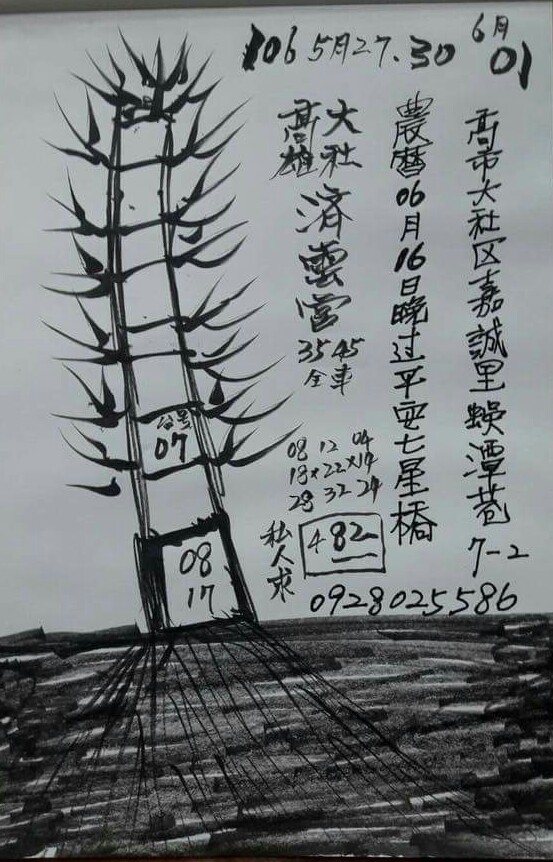 106 5月27.30 6月01
高市大社区嘉誠里蜈潭巷7-2
農曆06月16日晚过平安七星橋
大社
高雄
済雲宮
35 45
全車
08 12 04
18×22×14
28 32 24
私人求
482
0928025586
台号
07
08
17